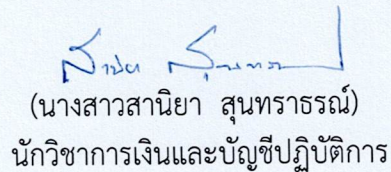 สานิยา สุนทรา
(นางสาวสานิยา สุนทราธรณ์)
นักวิชาการเงินและบัญชีปฏิบัติการ